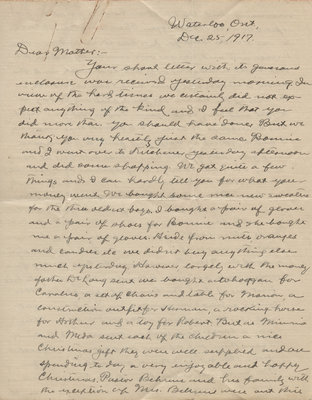 Waterloo Ont,
Dec. 25 - 1917.
Dear Mother:-
Your short letter with its generous
inclosure was received yesterday morning. In
view of the hard times we certainly did not ex-
pect anything of the kind, and I feel that you
did more than you should have done. But we
thank you very heartily just the same. Bonnie
and I went over to yesterday afternoon
and did some shopping. We got quite a few
things and I can hardly tell you for what your
money went. We bought some nice new sweaters
for the three oldest boys, I bought a pair of gloves
and a pair of shoes for Bonnie and she bought
me a pair of gloves. Aside from nuts oranges
and candies etc we did not buy anything else
much yesterday. However with the money
father sent we bought
a set of chairs and table for Marion a
construction outfit for Herman, a rocking horse
for Arthur and a toy for Robert. But as Minnie
and Meda sent each of the children a nice
Christmas gift they were well supplied and are
spending to-day a very enjoyable and happy
Christmas. Pastor Behrens and his family with
the exception of Mrs. Behrens were out this